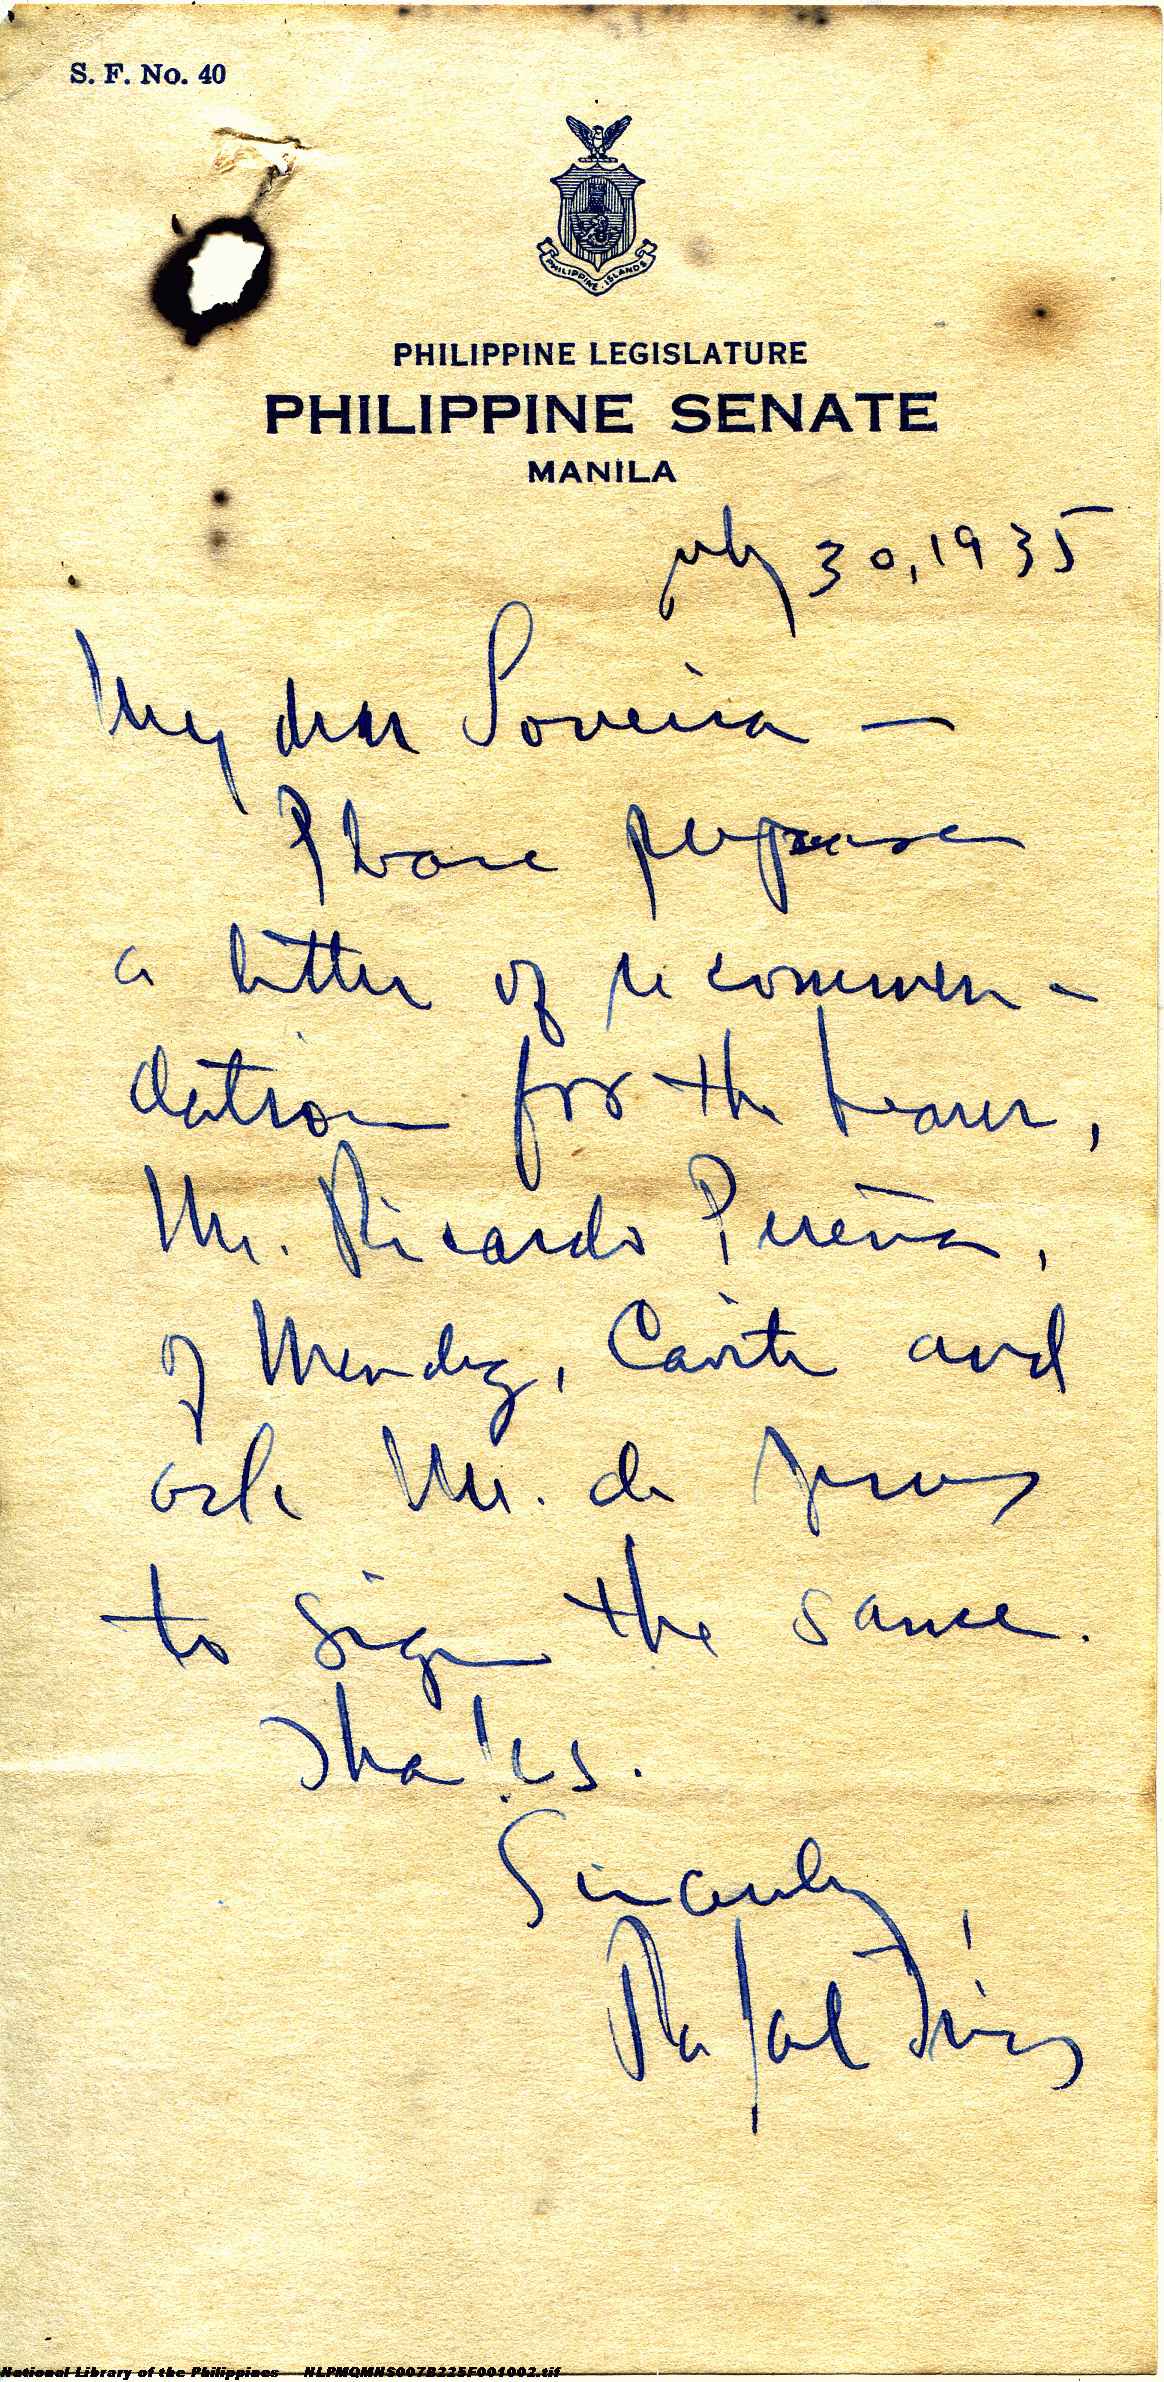 S. F. No. 40
PHILIPPINE ISLANDS
PHILIPPINE LEGISLATURE
PHILIPPINE SENATE
MANILA
July 30, 1935
My dear Soveira —
Please prepare
a letter of recommen-
dation for the bearer,
Mr. Ricardo Pereña,
of Mendez, Cavite and
ask Mr. de Jesus
to sign the same.
Thanks.
Sincerely,
Rafael
National Library of the Philippines NLPMQMNS007B225F001002.tif